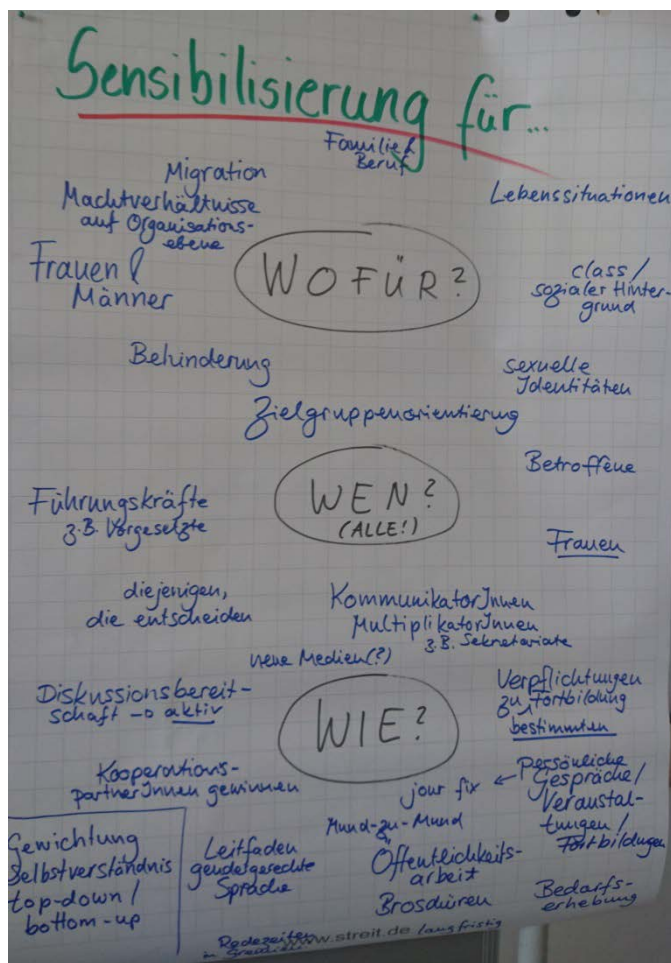 Sensibilisierung für...
Familie &
Beruf
Migration
Machtverhältnisse
auf Organisations-
ebene
Lebenssituationen
Frauen &
Männer
WOFÜR?
class /
sozialer Hinter-
grund
Behinderung
sexuelle
Identitäten
Zielgruppenorientierung
Betroffene
Führungskräfte
z.B. Vorgesetzte
WEN?
(ALLE!)
Frauen
diejenigen,
die entscheiden
KommunikatorInnen
MultiplikatorInnen
z.B. Sekretariate
neue Medien(?)
Diskussionsbereit-
schaft → aktiv
WIE?
Verpflichtungen
zu Fortbildung
bestimmten
Kooperations-
partnerInnen gewinnen
jour fix ← Persönliche
Gespräche /
Veranstal-
tungen /
Fortbildungen
Mund-zu-Mund
Öffentlichkeits-
arbeit
Broschüren
Bedarfs-
erhebung
Gewichtung
Selbstverständnis
top-down /
bottom-up
Leitfaden
gendergerechte
Sprache
Redezeiten
in Gremien
www.streit.de
langfristig